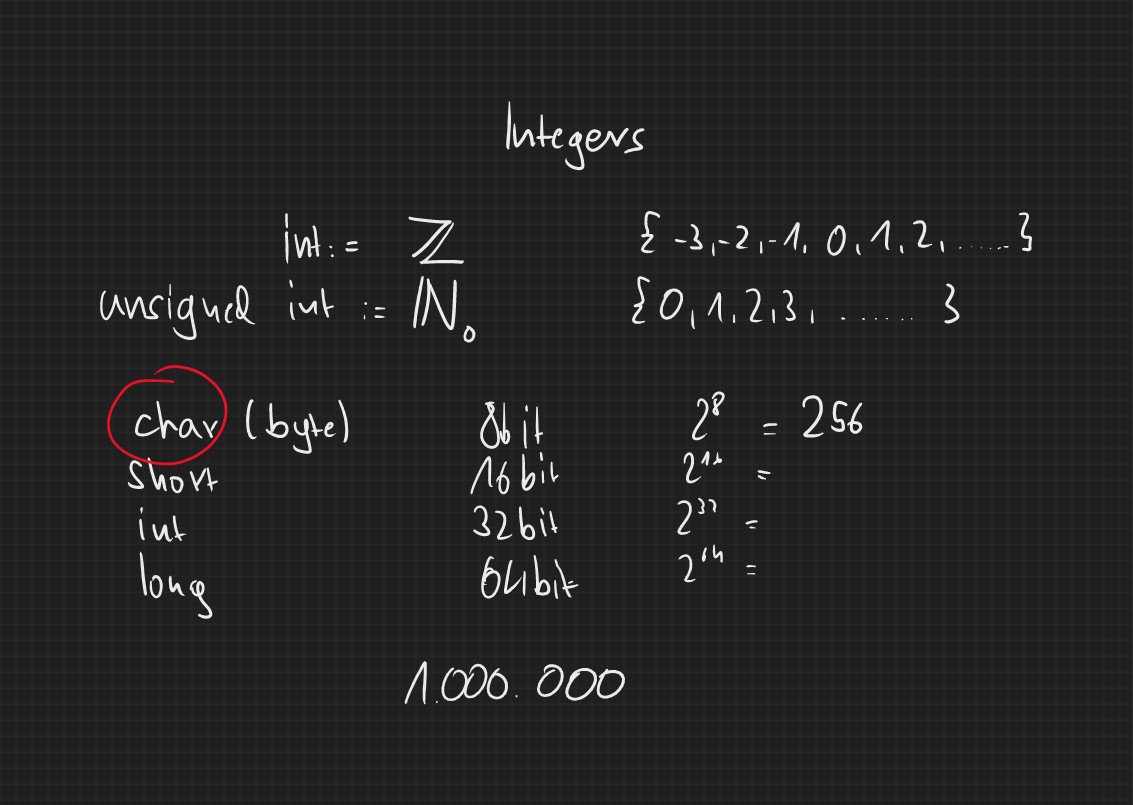 Integers
int := ℤ { -3, -2, -1, 0, 1, 2, ...... }
unsigned int := ℕ₀ { 0, 1, 2, 3, ...... }
char (byte) 8bit 2⁸ = 256
short 16bit 2¹⁶ =
int 32bit 2³² =
long 64bit 2⁶⁴ =
1.000.000